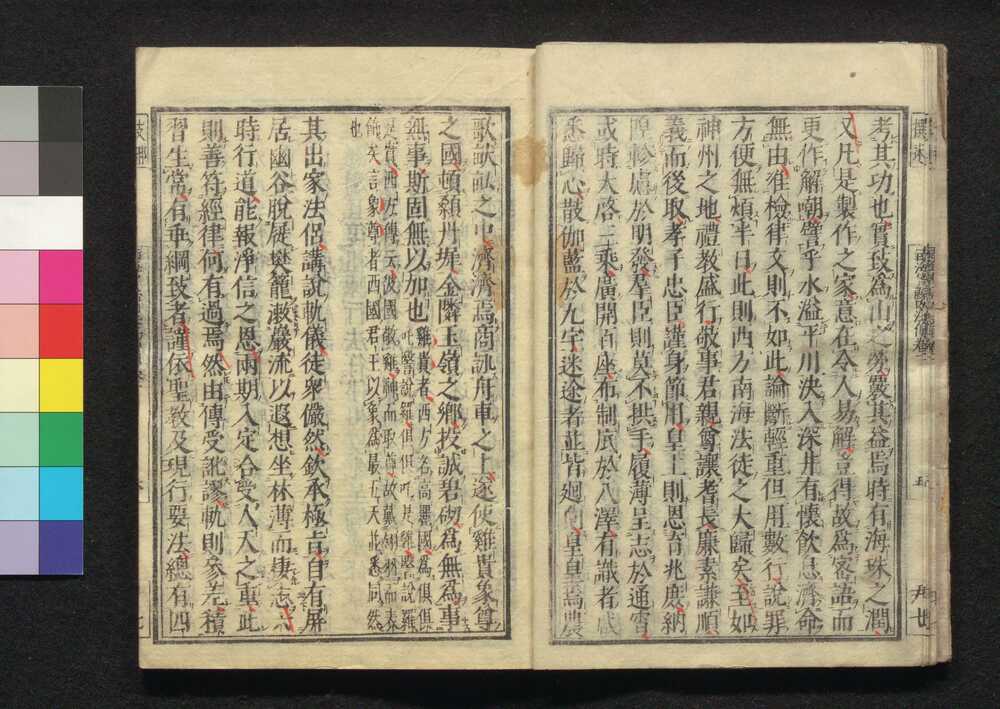 考其功也實致為山之勞覈其益焉時有海珠之潤
又凡是製作之家意在令人易解豈得故為密語而
更作解嘲譬乎水溢平川決入深井有懷飲息濟命
無由准檢律文則不如此論斷輕重但用數行說罪
方便無煩半日此則西方南海法徒之大歸矣至如
神州之地禮教盛行敬事君親尊讓耆長廉素謙順
義而後取孝子忠臣謹身節用皇上則恩育兆庶納
隍軫慮於明發羣臣則莫不拱手履薄呈志於通宵
或時大啓三乘廣開百座布制底於八澤有識者咸
悉歸心散伽藍於九宇迷途者並皆迴向皇皇焉農
歌畎畝之中濟濟焉商詠舟車之上遂使雞貴象尊
之國頓顙丹墀金隣玉嶺之鄉投誠碧砌為無為事
無事斯固無以加也
雞貴者西方名高麗國為俱俱
吒䃜說羅俱俱吒是雞䃜說羅
是貴西方傳云彼國敬雞神而取尊故戴翎羽而表
飾矣言象尊者西國君王以象為最五天並悉同然
也
其出家法侶講說軌儀徒眾儼然欽承極旨自有屏
居幽谷脫屣樊籠漱巖流以遐想坐林薄而棲志六
時行道能報淨信之恩兩期入定合受人天之重此
則善符經律何有過焉然由傳受訛謬軌則參差積
習生常有乖綱致者謹依聖教及現行要法總有四